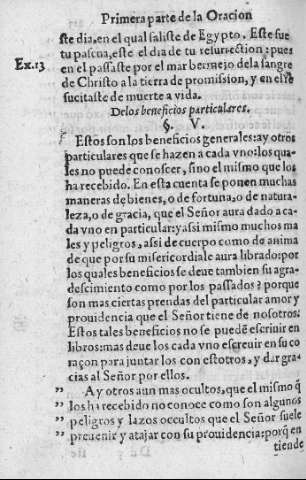 Primera parte de la Oracion
ste dia, en el qual saliste de Egypto. Este fue
tu pascua, este el dia de tu resurrection: pues
Ex. 13 en el passaste por el mar bermejo de la sangre
de Christo a la tierra de promission, y en el re
sucitaste de muerte a vida.
De los beneficios particulares.
§. V.
Estos son los beneficios generales: ay otros
particulares que se hazen a cada vno: los qua-
les no puede conoscer, sino el mismo que los
ha recebido. En esta cuenta se ponen muchas
maneras de bienes, o de fortuna, o de natura-
leza, o de gracia, que el Señor aura dado a ca-
da vno en particular: y assi mismo muchos ma
les y peligros, assi de cuerpo como de anima
de que por su misericordia le aura librado: por
los quales beneficios se deue tambien su agra-
descimiento como por los passados? porque
son mas ciertas prendas del particular amor y
prouidencia que el Señor tiene de nosotros.
Estos tales beneficios no se puedẽ escriuir en
libros: mas deue los cada vno escreuir en su co
raçon para juntar los con estotros, y dar gra-
cias al Señor por ellos.
" A y otros aun mas ocultos, que el mismo q̃
" los ha recebido no conoce como son algunos
" peligros y lazos occultos que el Señor suele
" preuenir y atajar con su prouidencia: porq̃ en
tiende